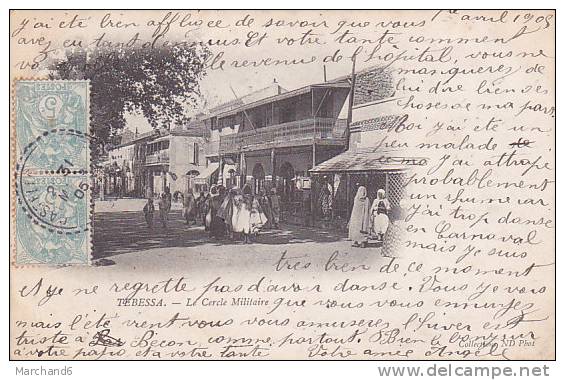 1er avril 1905
j'ai été bien affligée de savoir que vous
avez eu tant d'ennuis. Et votre tante comment
va est-elle revenue de l'hôpital, vous ne
manquerez de
lui dire bien des
choses de ma part.
Moi j'ai été un
peu malade
j'ai attrapé
probablement
un rhume car
j'ai trop dansé
en Carnaval
mais je suis
très bien de ce moment
et je ne regrette pas d'avoir dansé. Vous je vois
TÉBESSA. - Le Cercle Militaire
que vous vous ennuyez
mais l'été vient vous vous amuserez l'hiver est
triste à Bécon comme partout. Bien le bonjour
à votre papa, et à votre tante Votre amie Angèle
Collection ND Phot